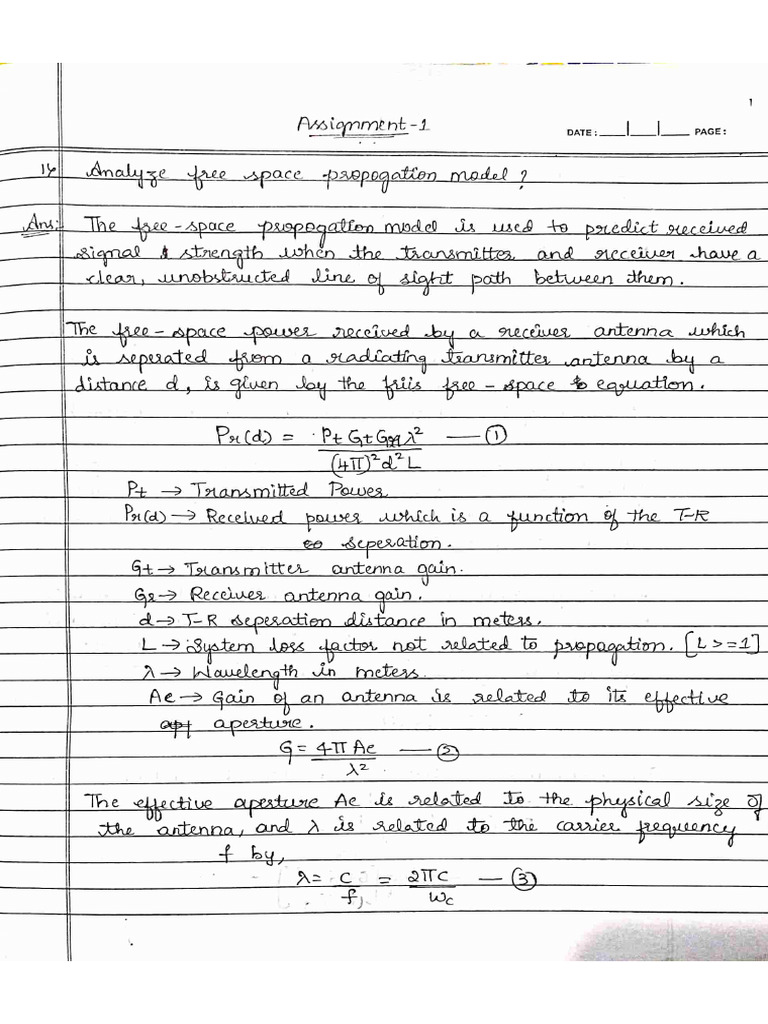 1
Assignment-1
DATE: __|__|__ PAGE:
1) Analyze free space propogation model?
Ans: The free-space propogation model is used to predict received
signal strength when the transmitter and receiver have a
clear, unobstructed line of sight path between them.
The free-space power received by a receiver antenna which
is seperated from a radiating transmitter antenna by a
distance d, is given by the friis free-space equation.
Pr(d) = Pt Gt Gr λ² / (4π)² d² L — ①
Pt → Transmitted Power
Pr(d) → Received power which is a function of the T-R
seperation.
Gt → Transmitter antenna gain.
Gr → Receiver antenna gain.
d → T-R seperation distance in meters.
L → System loss factor not related to propagation. [L >= 1]
λ → Wavelength in meters
Ae → Gain of an antenna is related to its effective
aperture.
G = 4π Ae / λ² — ②
The effective aperture Ae is related to the physical size of
the antenna, and λ is related to the carrier frequency
f by,
λ = c / f = 2πc / wc — ③